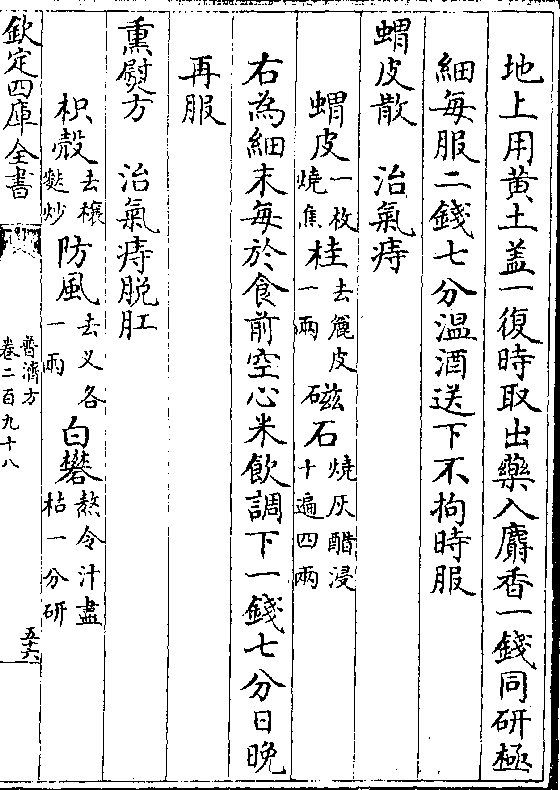 地上用黄土盖一復時取出藥入麝香一錢同研極
細每服二錢七分温酒送下不拘時服
蝟皮散　治氣痔
蝟皮一枚燒焦桂去麄皮一兩磁石燒灰醋浸十遍四兩
右為細末每於食前空心米飲調下一錢七分日晚
再服
熏熨方　治氣痔脱肛
枳殻去穰麩炒防風去义各一兩白礬熬令汁盡枯一分研
欽定四庫全書
普濟方
卷二百九十八
五十六